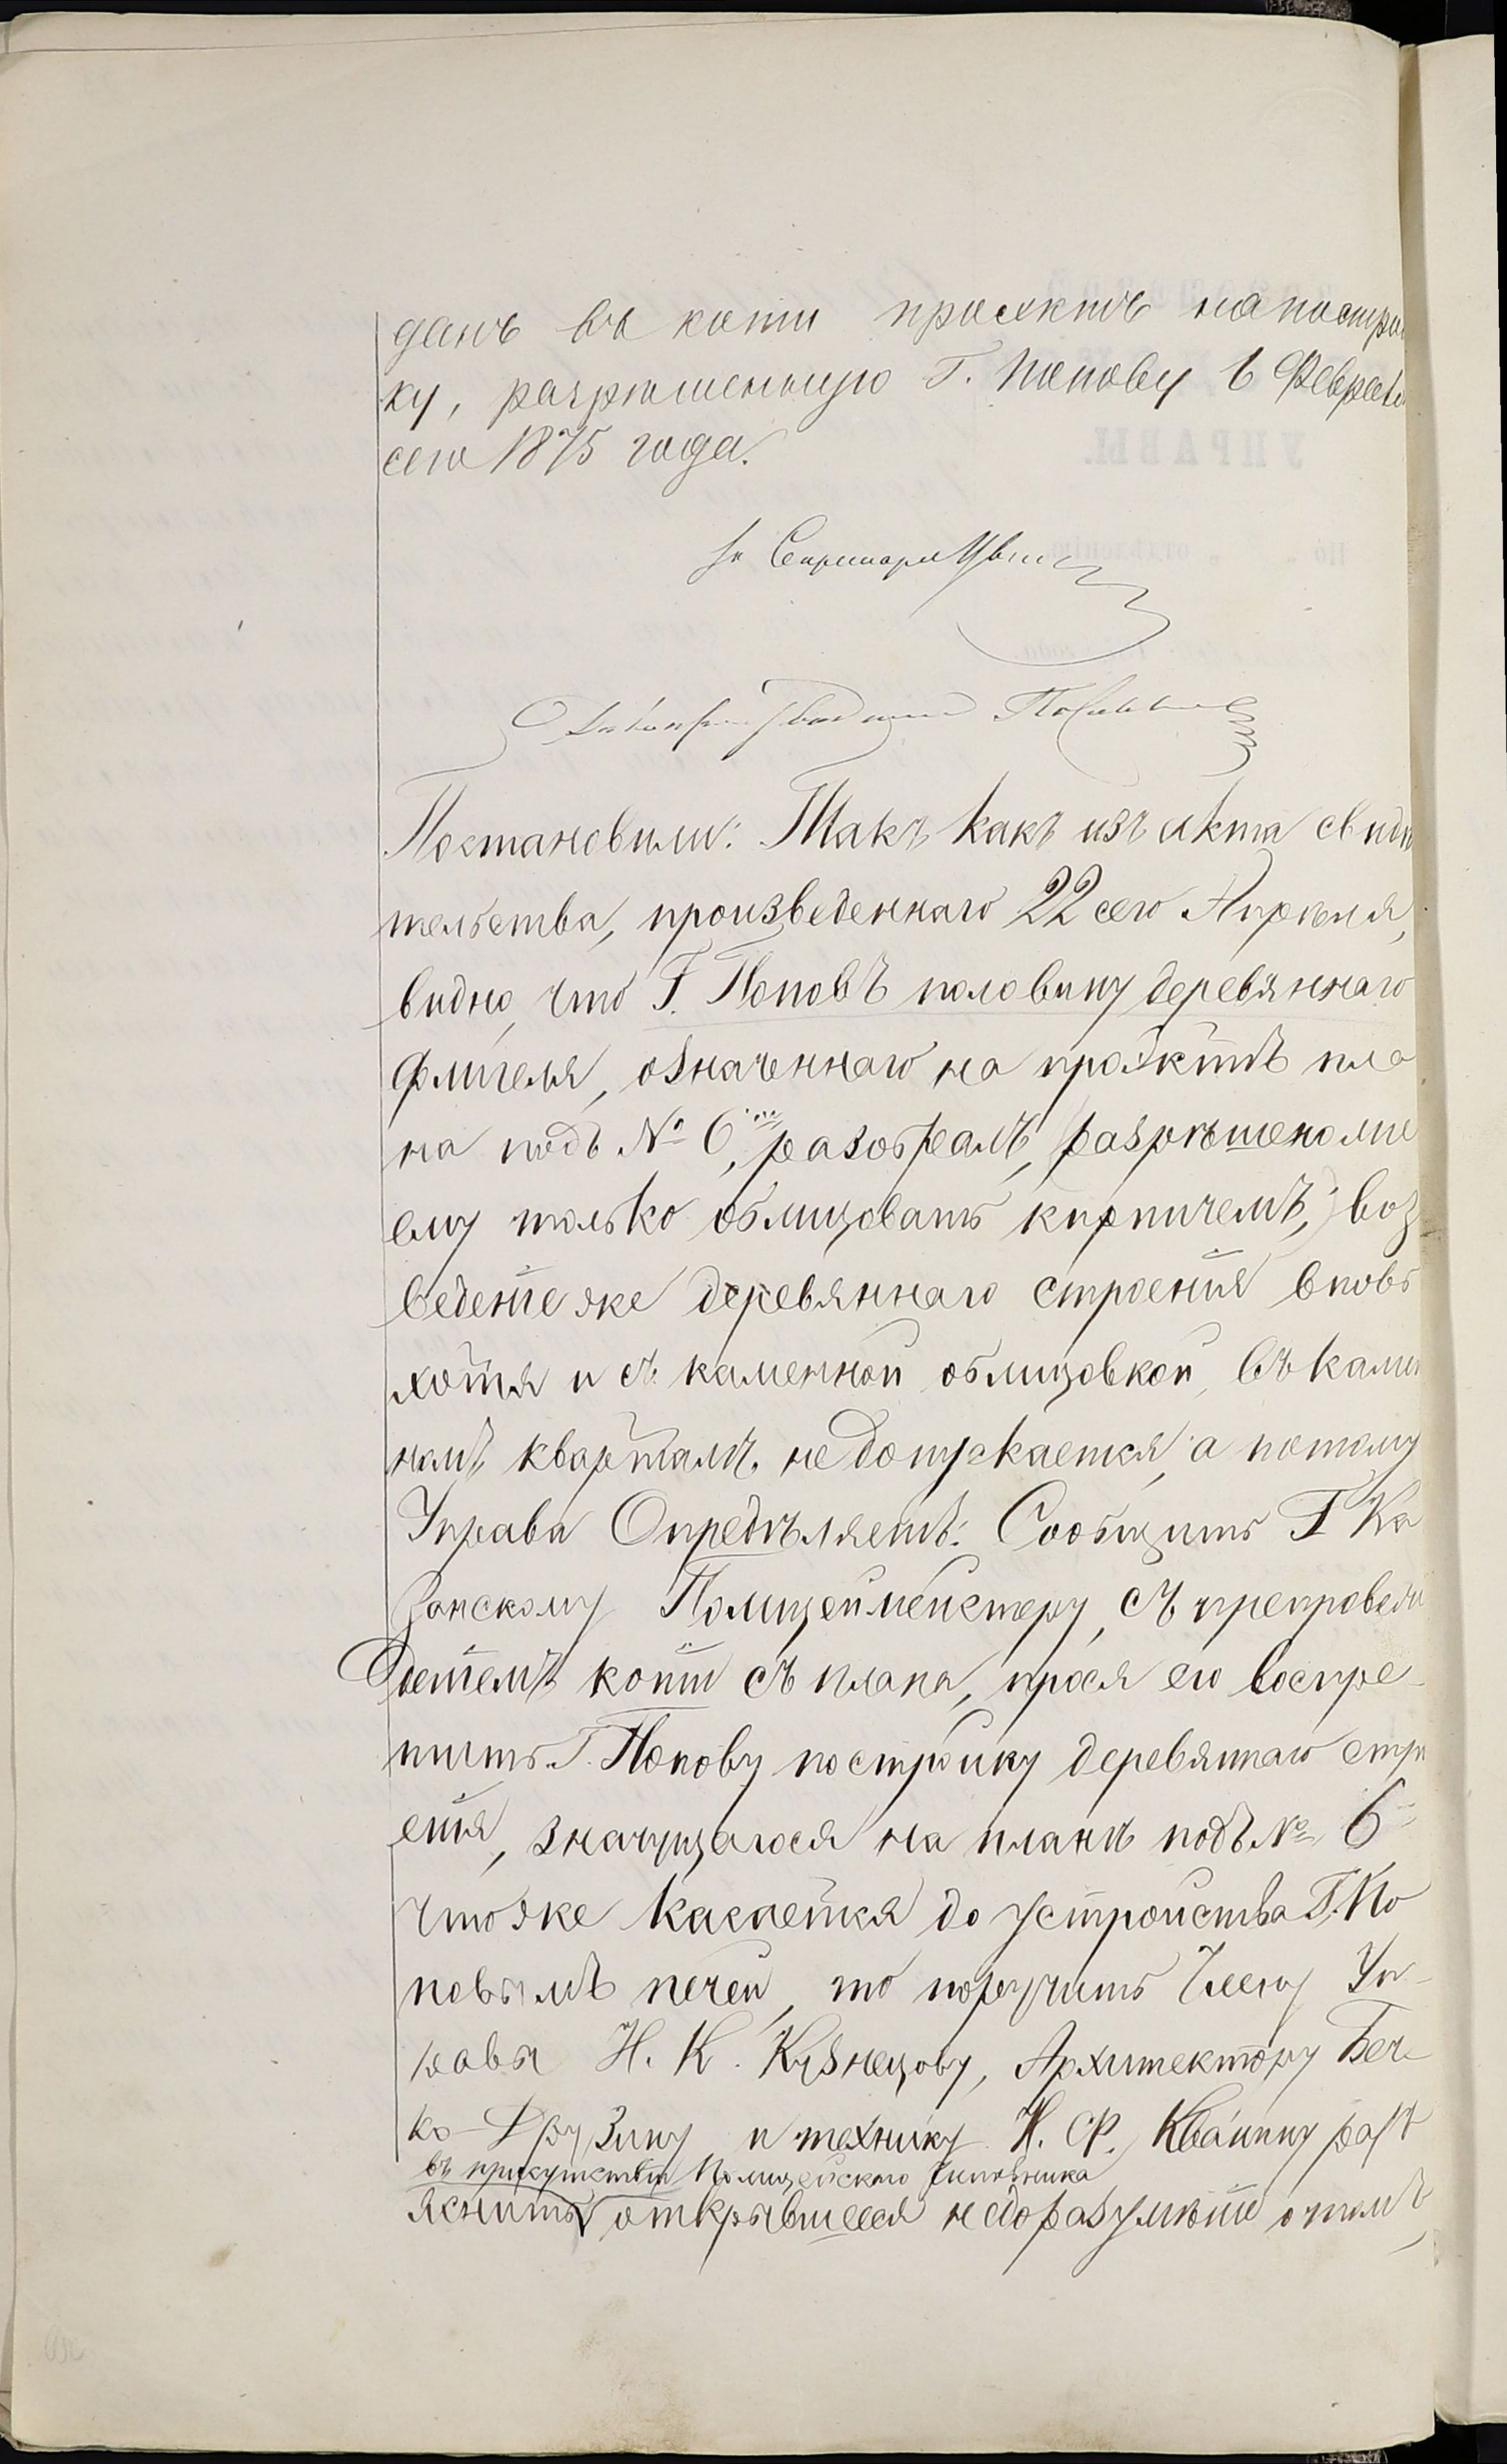 данъ въ копіи проэктъ на построй
ку, разрѣшенную Г. Попову 6 Феврал
сего 1875 года.
За Секретаря
Постановили: Такъ какъ изъ акта свидѣ
тельства, произведеннаго 22 сего Апрѣля,
видно, что Г. Поповъ половину деревяннаго
флигеля, означеннаго на проэктѣ пла
на подъ № 6, разобралъ, разрѣшено же
ему только облицовать кирпичемъ; воз
веденіе же деревяннаго строенія вновь
хотя и съ каменной облицовкой, въ камен
номъ кварталѣ не допускается, а потому
Управа Опредѣляетъ: Сообщить Г. Ка
занскому Полицеймейстеру, съ препровож
деніемъ копіи съ плана, прося его воспре
тить Г. Попову постройку деревяннаго стро
енія, значущагося на планѣ подъ № 6
что же касается до устройства Г. По
повымъ печей, то поручить Члену Уп-
равы Н. К. Кузнецову, Архитектору Беч
ко-Друзину и технику Н. Ф. Квашнину разъ
въ присутствіи Полицейскаго Чиновника
яснить открывшееся недоразумѣніе о томъ,
УПРАВЫ.
По " " отдѣленію